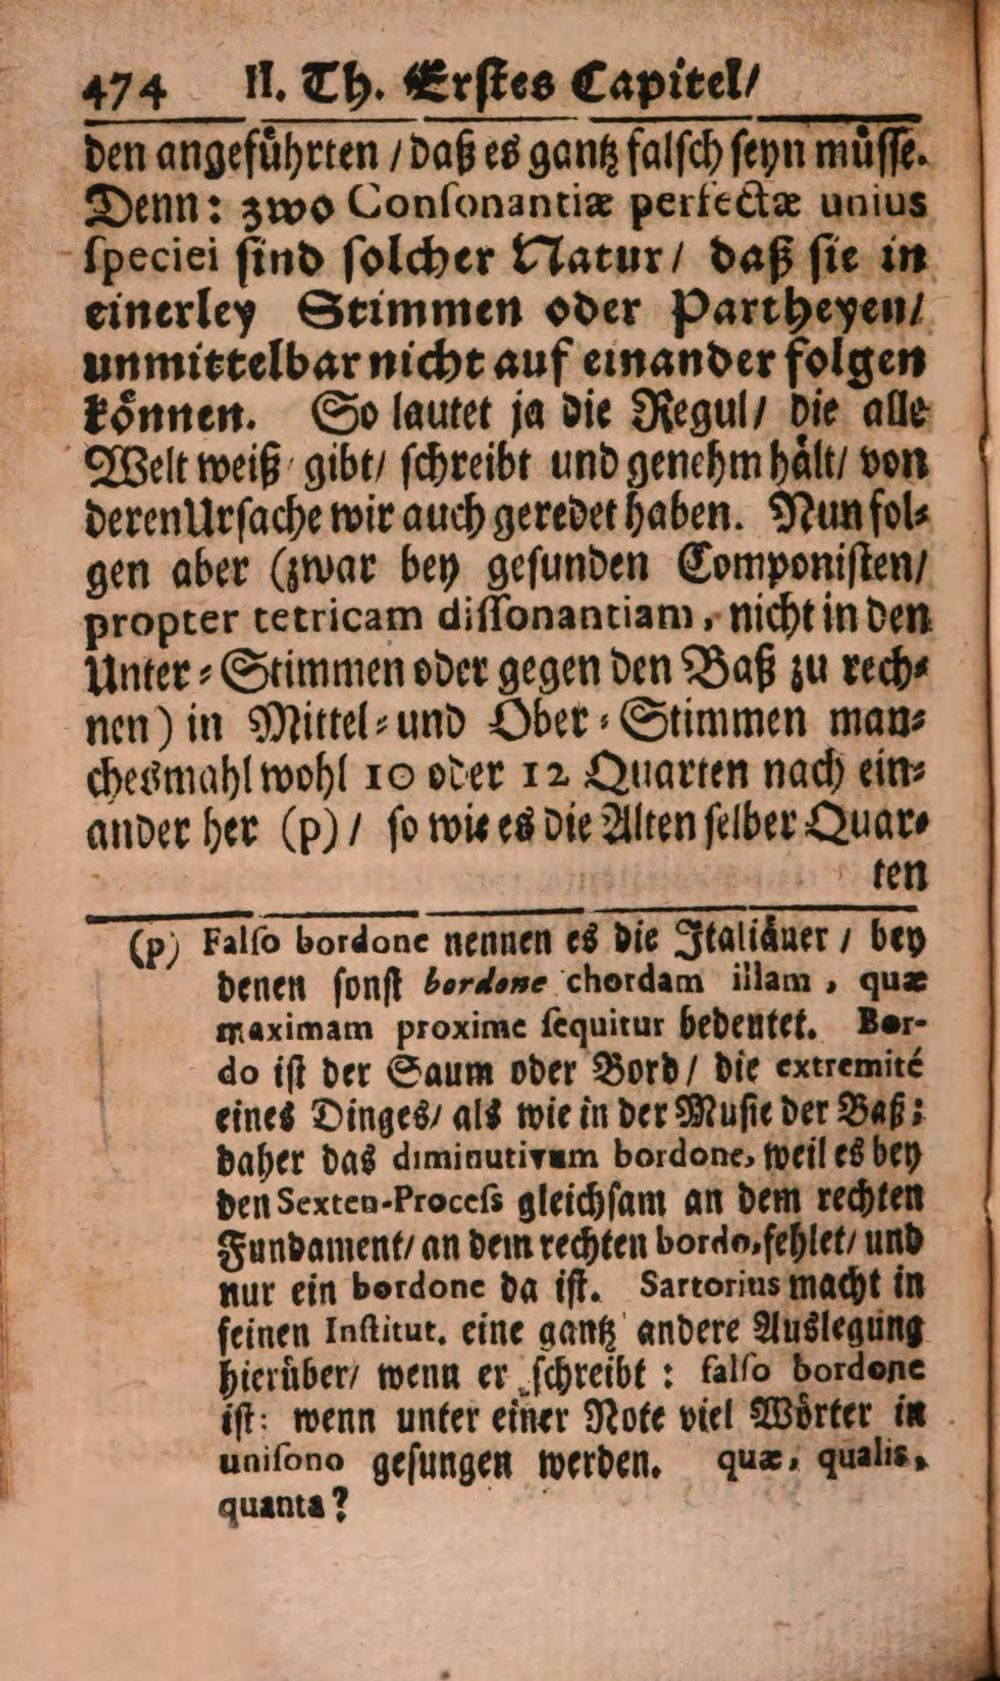 474 II. Th. Erstes Capitel/
den angeführten / daß es gantz falsch seyn müsse.
Denn: zwo Consonantiæ perfectæ unius
speciei sind solcher Natur/ daß sie in
einerley Stimmen oder Partheyen/
unmittelbar nicht auf einander folgen
können. So lautet ja die Regul/ die alle
Welt weiß/ gibt/ schreibt und genehm hält/ von
deren Ursache wir auch geredet haben. Nun fol-
gen aber (zwar bey gesunden Componisten/
propter tetricam dissonantiam, nicht in den
Unter-Stimmen oder gegen den Baß zu rech-
nen) in Mittel- und Ober-Stimmen man-
chesmahl wohl 10 oder 12 Quarten nach ein-
ander her (p) / so wie es die Alten selber Quar-
ten
(p) Falso bordone nennen es die Italiäner / bey
denen sonst bordone chordam illam, quæ
maximam proxime sequitur bedeutet. Bor-
do ist der Saum oder Bord/ die extremité
eines Dinges/ als wie in der Music der Baß;
daher das diminutivum bordone, weil es bey
den Sexten-Process gleichsam an dem rechten
Fundament/ an dem rechten bordo, fehlet/ und
nur ein bordone da ist. Sartorius macht in
seinen Institut. eine gantz andere Auslegung
hierüber/ wenn er schreibt: falso bordone
ist: wenn unter einer Note viel Wörter in
unisono gesungen werden. quæ, qualis,
quanta?